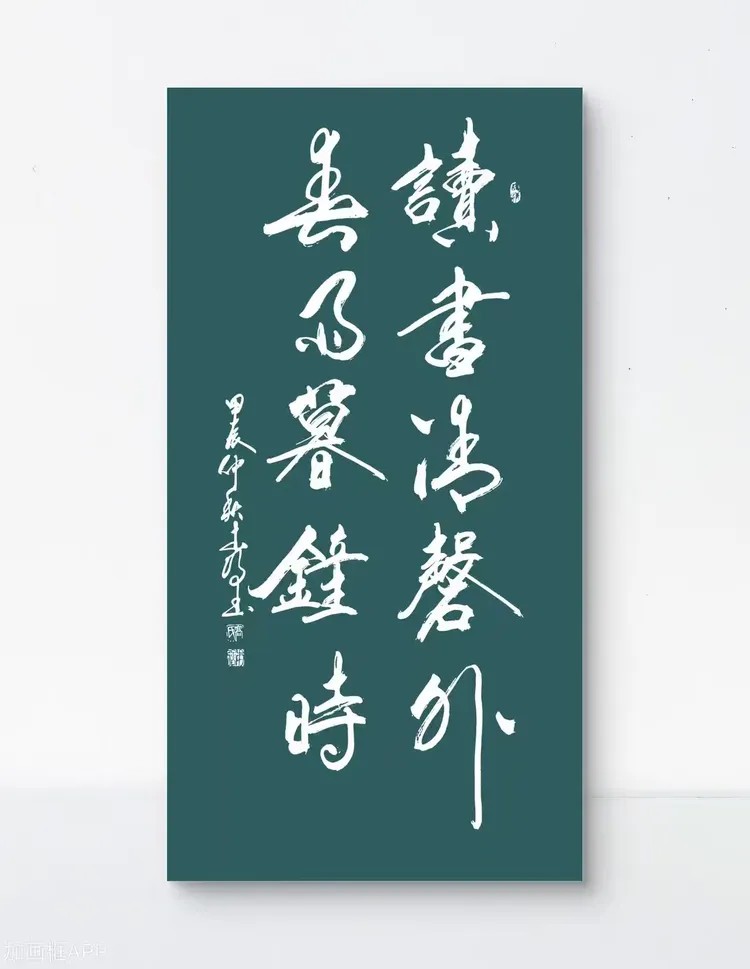 讀書清磬外
看雨暮鐘時
甲辰仲秋
加画框APP